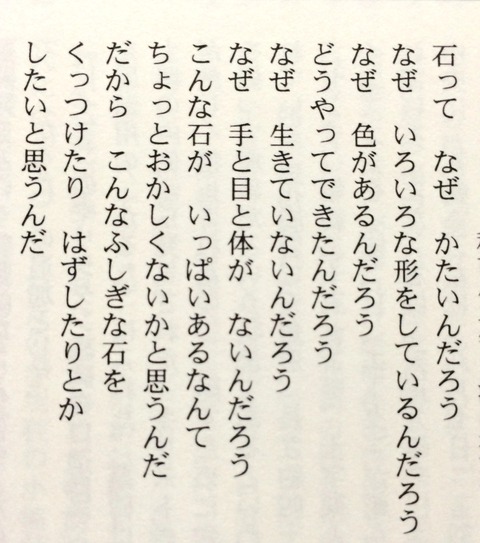 石って　なぜ　かたいんだろう
なぜ　いろいろな形をしているんだろう
なぜ　色があるんだろう
どうやってできたんだろう
なぜ　生きていないんだろう
なぜ　手と目と体が　ないんだろう
こんな石が　いっぱいあるなんて
ちょっとおかしくないかと思うんだ
だから　こんなふしぎな石を
くっつけたり　はずしたりとか
したいと思うんだ